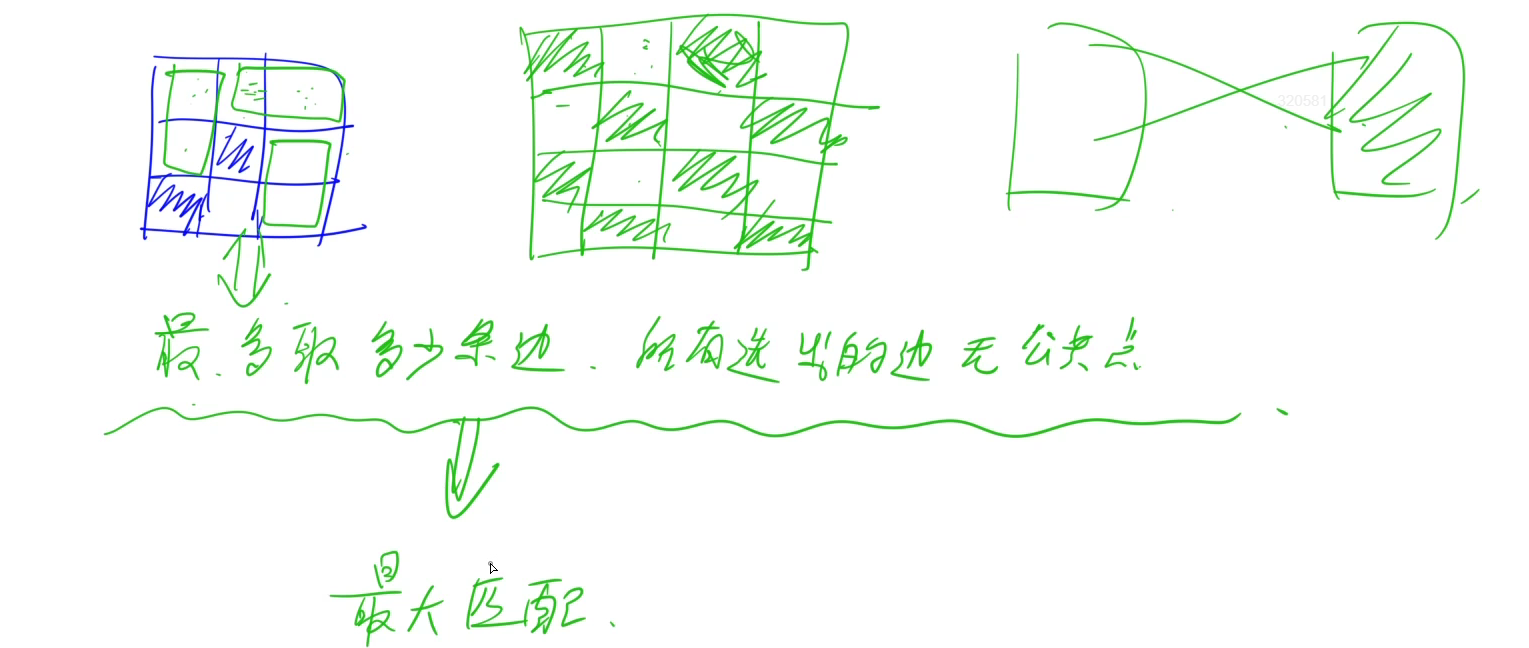 320581
最多取多少条边.所有选出的边无公共点
最大匹配.